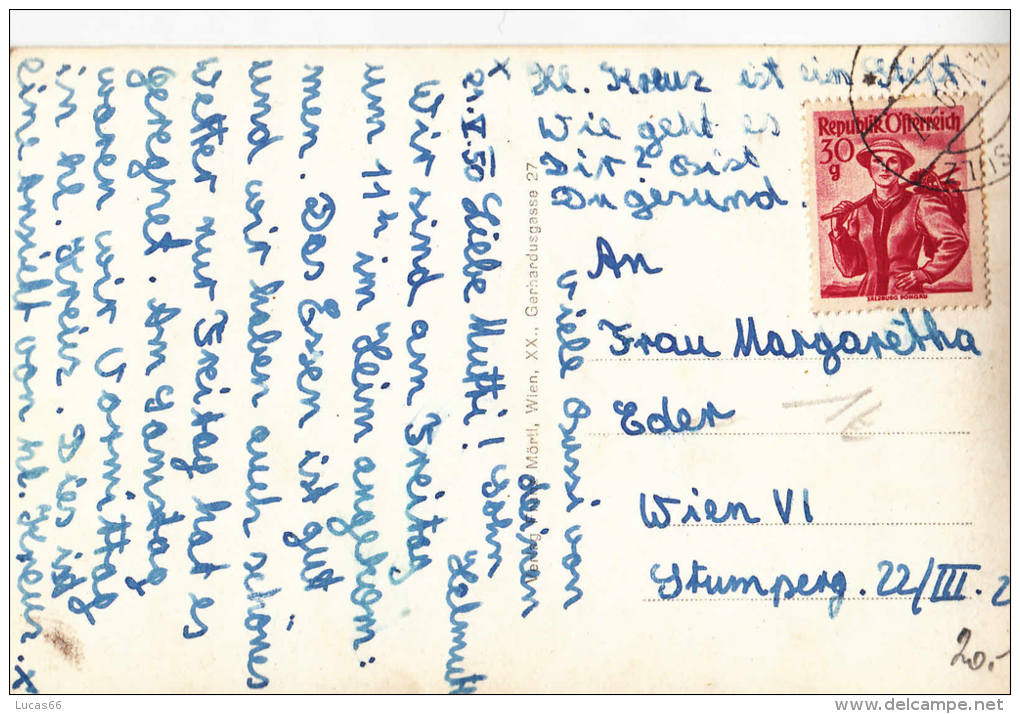 21.V.50 Liebe Mutti!
Wir sind am Freitag
um 11h im Heim angekom:
men. Das Essen ist gut
und wir haben auch schönes
Wetter nur Freitag hat es
geregnet. Am Samstag
waren wir Vormittag
in hl. Kreuz. Dies ist
eine Ansicht von hl. Kreuz. x
x Hl. Kreuz ist ein Stift.
Wie geht es
Dir? Bist
Du gesund.
viele Bussi von
deinen
Sohn
Helmut
Verlag Mörtl, Wien, XX., Gerhardusgasse 27
Republik Österreich
30
g
SALZBURG PONGAU
An
Frau Margaretha
Eder
Wien VI
Stumperg. 22/III. 2
20.-
Lucas66
delcampe.net